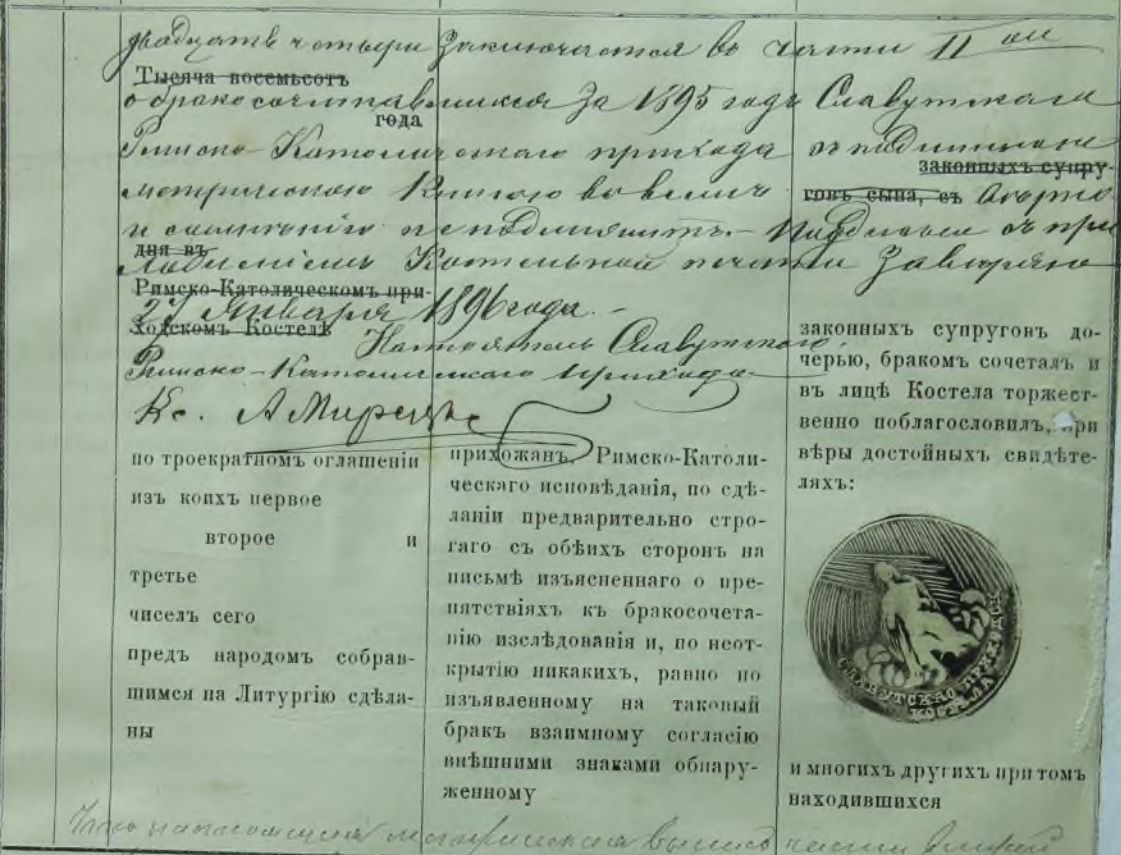 двадцать четыре заключается въ части II ой
Тысяча восемьсотъ
о бракосочетавшихся за 1895 годъ Славутскаго
года
Римско-Католическаго прихода съ подлинною
законныхъ супру-
метрическою Книгою въ
говъ сына, съ
и сомнѣнію не подлежитъ.-
дня въ
Костельной печати Заверяю
Римско-Католическомъ при-
Января 1896 года.-
ходскомъ Костелѣ
Настоятель Славутскаго
Римско-Католическаго прихода
Кс. А Мирецкі
по троекратномъ оглашеніи
изъ коихъ первое
второе и
третье
чиселъ сего
предъ народомъ собрав-
шимся на Литургію сдѣла-
ны
прихожанъ, Римско-Католи-
ческаго исповѣданія, по сдѣ-
ланіи предварительно стро-
гаго съ обѣихъ сторонъ на
письмѣ изъясненнаго о пре-
пятствіяхъ къ бракосочета-
нію изслѣдованія и, по неот-
крытію никакихъ, равно по
изъявленному на таковый
бракъ взаимному согласію
внѣшними знаками обнару-
женному
законныхъ супруговъ до-
черью, бракомъ сочеталъ и
въ лицѣ Костела торжест-
венно поблагословилъ, при
вѣры достойныхъ свидѣте-
ляхъ:
и многихъ другихъ при томъ
находившихся
метрическая выпись